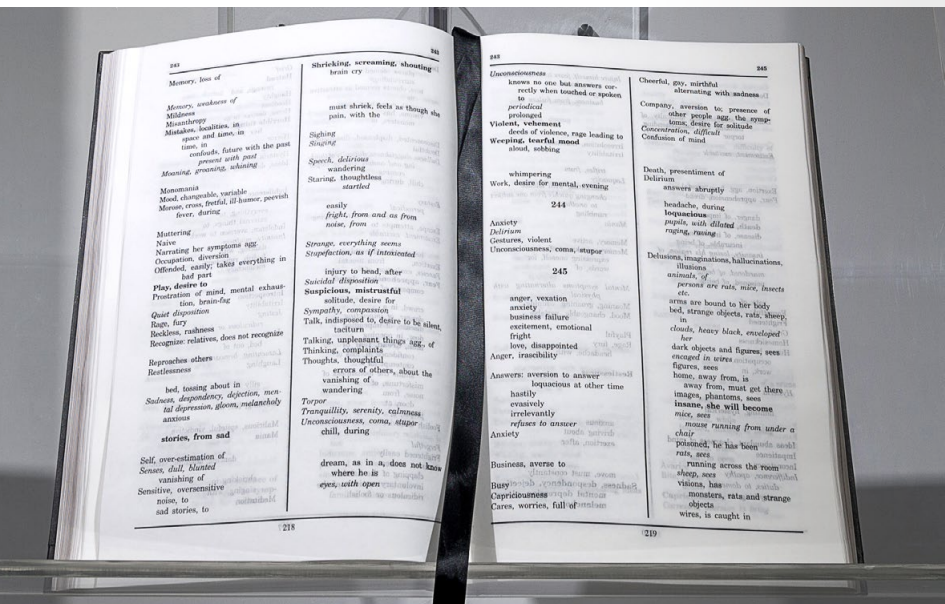 243
243
Memory, loss of
Memory, weakness of
Mildness
Misanthropy
Mistakes, localities, in
space and time, in
time, in
confouds, future with the past
present with past
Moaning, groaning, whining
Monomania
Mood, changeable, variable
Morose, cross, fretful, ill-humor, peevish
fever, during
Muttering
Naive
Narrating her symptoms agg
Occupation, diversion
Offended, easily; takes everything in
bad part
Play, desire to
Prostration of mind, mental exhaus-
tion, brain-fag
Quiet disposition
Rage, fury
Reckless, rashness
Recognize: relatives, does not recognize
Reproaches others
Restlessness
bed, tossing about in
Sadness, despondency, dejection, men-
tal depression, gloom, melancholy
anxious
stories, from sad
Self, over-estimation of
Senses, dull, blunted
vanishing of
Sensitive, oversensitive
noise, to
sad stories, to
Shrieking, screaming, shouting
brain cry
must shriek, feels as though she
pain, with the
Sighing
Singing
Speech, delirious
wandering
Staring, thoughtless
startled
easily
fright, from and as from
noise, from
Strange, everything seems
Stupefaction, as if intoxicated
injury to head, after
Suicidal disposition
Suspicious, mistrustful
solitude, desire for
Sympathy, compassion
Talk, indisposed to, desire to be silent,
taciturn
Talking, unpleasant things agg., of
Thinking, complaints
Thoughts, thoughtful
errors of others, about the
vanishing of
wandering
Torpor
Tranquillity, serenity, calmness
Unconsciousness, coma, stupor
chill, during
dream, as in a, does not know
where he is
eyes, with open
218
243
245
Unconsciousness
knows no one but answers cor-
rectly when touched or spoken
to
periodical
prolonged
Violent, vehement
deeds of violence, rage leading to
Weeping, tearful mood
aloud, sobbing
whimpering
Work, desire for mental, evening
244
Anxiety
Delirium
Gestures, violent
Unconsciousness, coma, stupor
245
anger, vexation
anxiety
business failure
excitement, emotional
fright
love, disappointed
Anger, irascibility
Answers: aversion to answer
loquacious at other time
hastily
evasively
irrelevantly
refuses to answer
Anxiety
Business, averse to
Busy
Capriciousness
Cares, worries, full of
Cheerful, gay, mirthful
alternating with sadness
Company, aversion to; presence of
other people agg. the symp-
toms; desire for solitude
Concentration, difficult
Confusion of mind
Death, presentiment of
Delirium
answers abruptly
headache, during
loquacious
pupils, with dilated
raging, raving
Delusions, imaginations, hallucinations,
illusions
animals, of
persons are rats, mice, insects
etc.
arms are bound to her body
bed, strange objects, rats, sheep,
in
clouds, heavy black, enveloped
her
dark objects and figures, sees
encaged in wires
figures, sees
home, away from, is
away from, must get there
images, phantoms, sees
insane, she will become
mice, sees
mouse running from under a
chair
poisoned, he has been
rats, sees
running across the room
sheep, sees
visions, has
monsters, rats and strange
objects
wires, is caught in
219